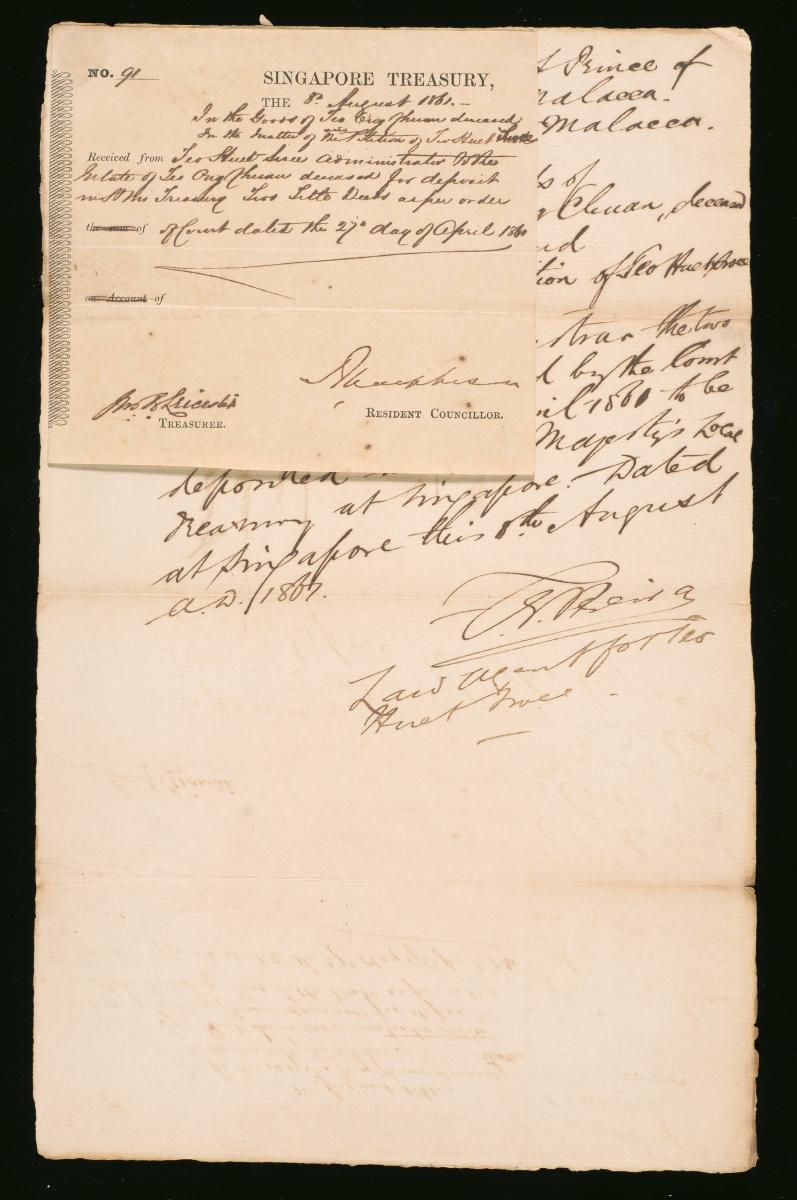 NO. 91
SINGAPORE TREASURY,
THE 8th August 1861.-
In the Goods of Teo Eng Chuan deceased
In the Matter of the Petition of Teo Huet
Received from Teo Huet administrator to the
Estate of Teo Chuan deceased for deposit
in Treasury Two Title Deeds as per order
the sum of of Court dated the 27th day of April 1860
on Account of
RESIDENT COUNCILLOR.
TREASURER.
Prince of
Malacca.
Malacca.
of
Chuan, deceased
tion of Teo Huet
the two
by the Court
1860 to be
Majesty's Local
deposited
Treasury at Singapore. Dated
at Singapore this 8th August
A.D. 1861.
Law Agent for Teo
Huet